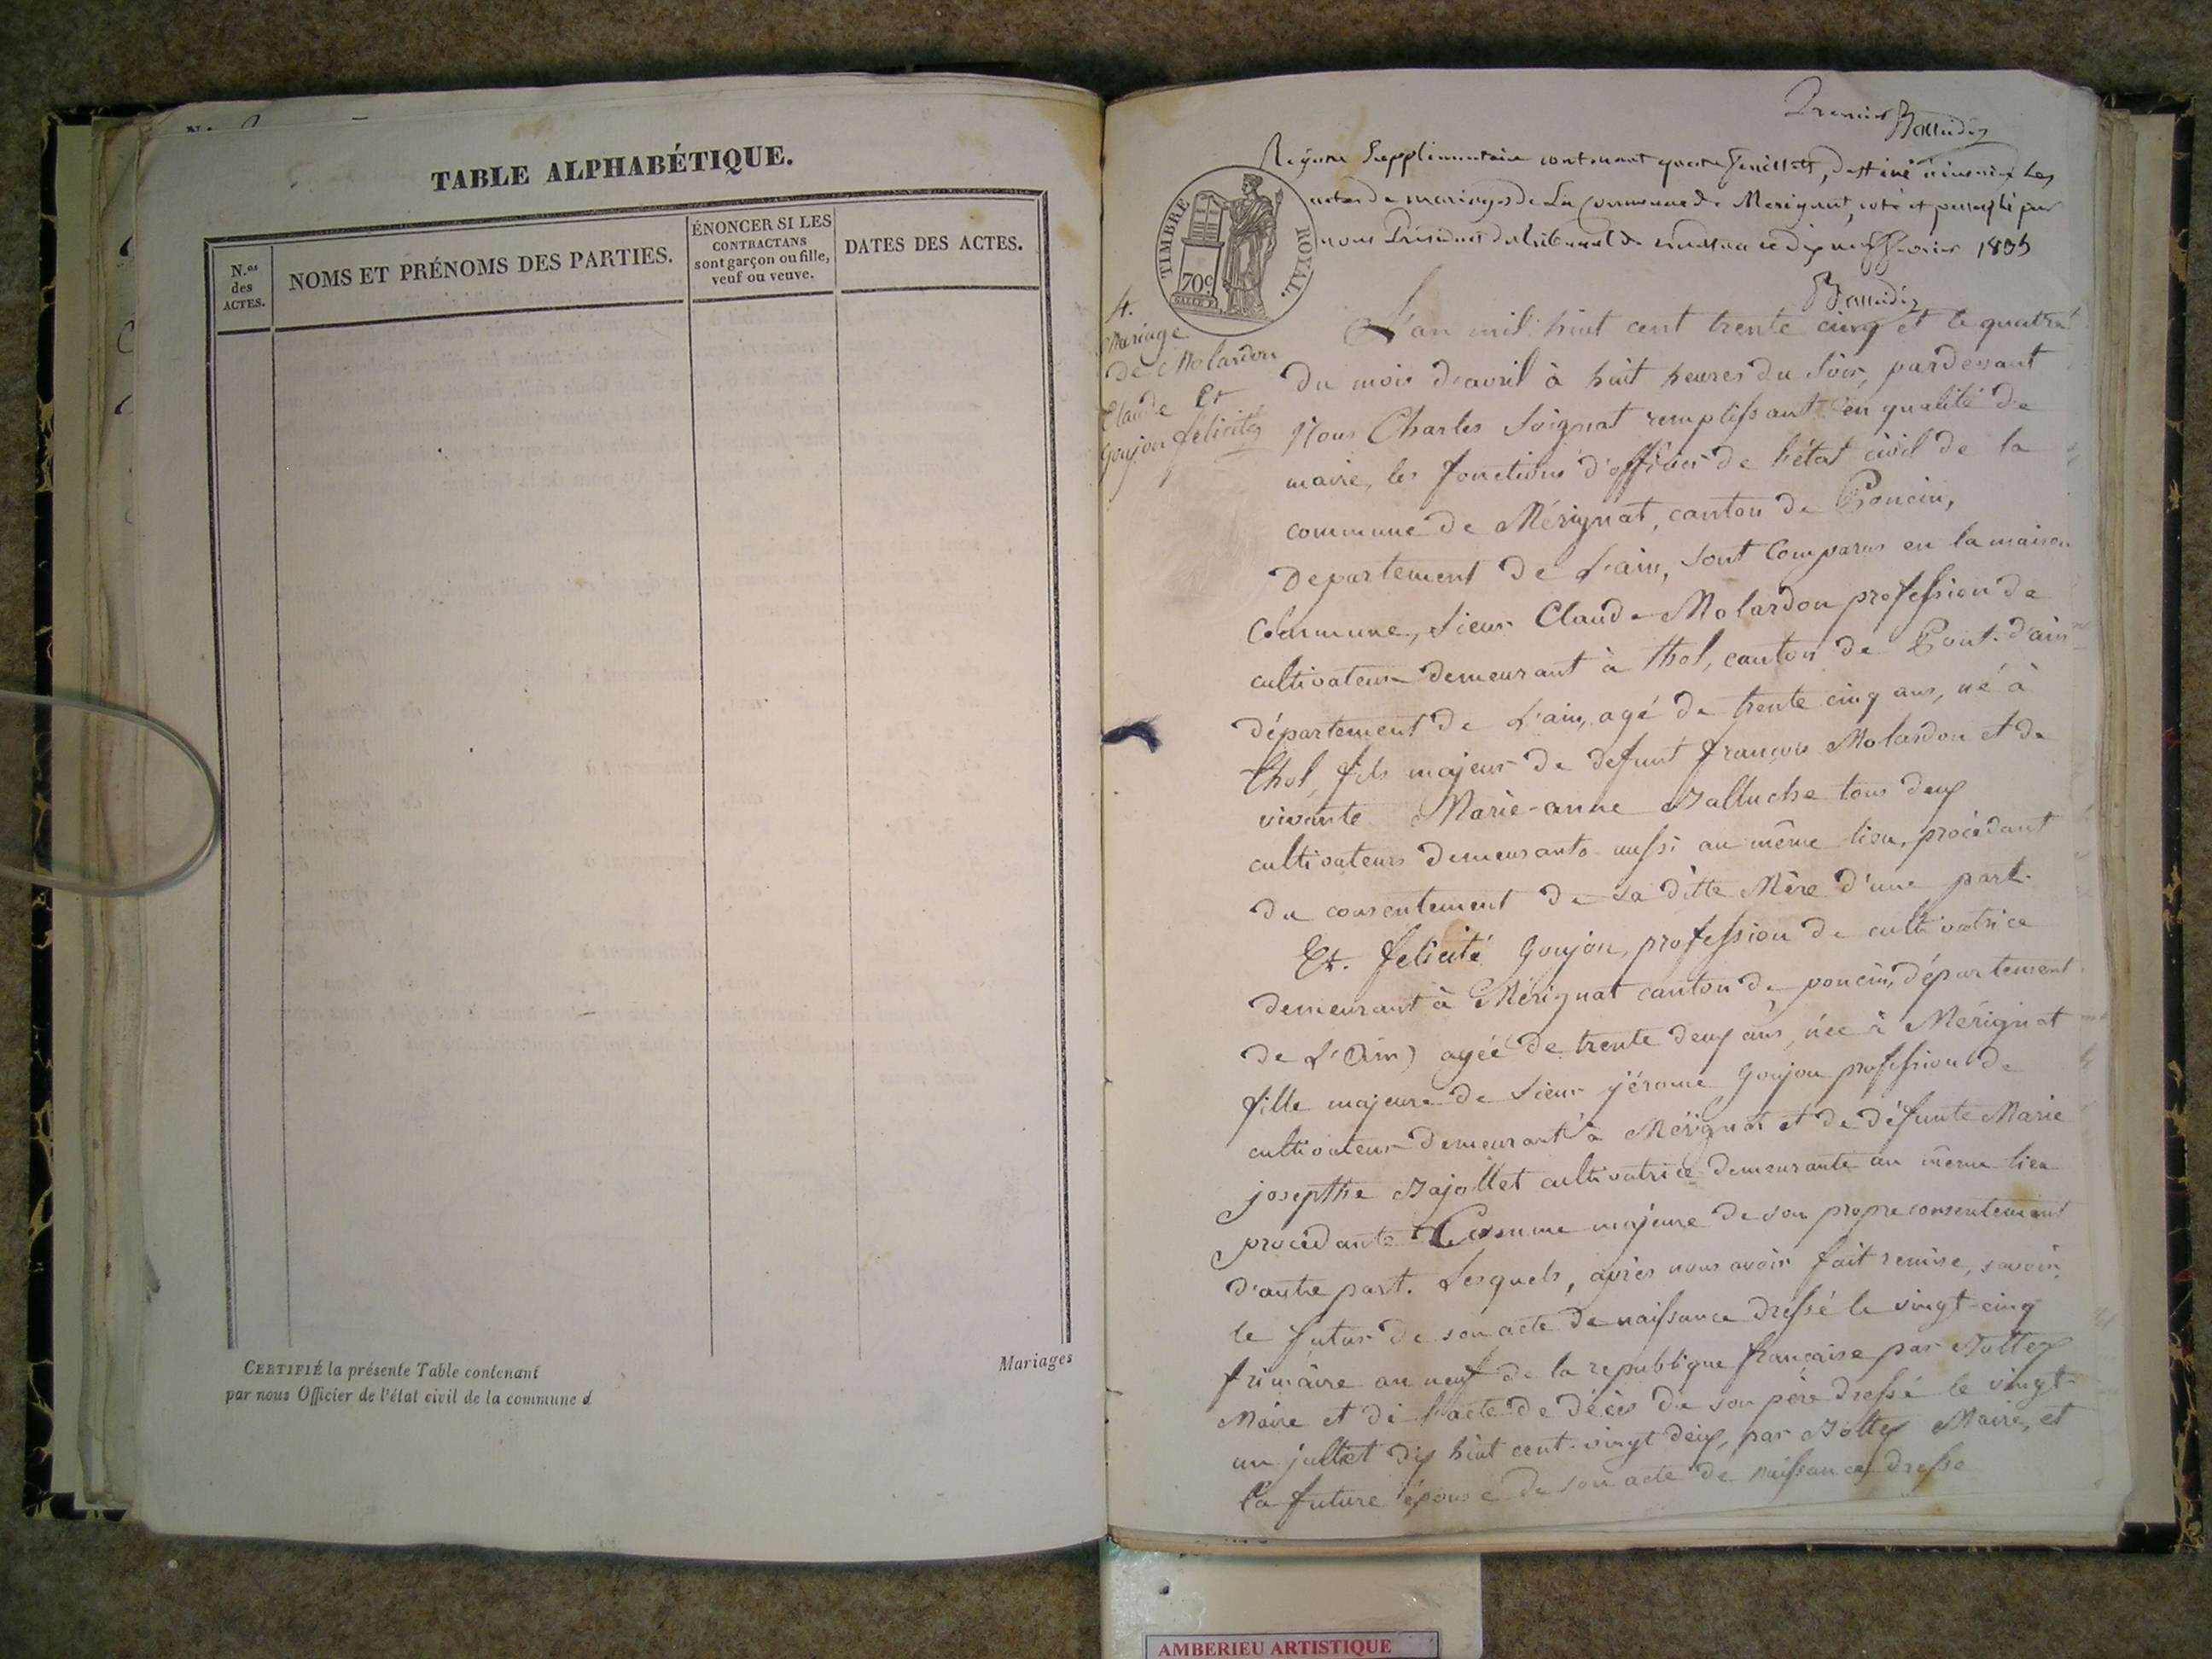 TABLE ALPHABÉTIQUE.
N.os des ACTES.
NOMS ET PRÉNOMS DES PARTIES.
ÉNONCER SI LES
CONTRACTANS
sont garçon ou fille,
veuf ou veuve.
DATES DES ACTES.
CERTIFIÉ la présente Table contenant
par nous Officier de l'état civil de la commune d
Mariages
Premier
Registre supplémentaire contenant quatre feuillets, destiné à inscrire les
actes de mariages de la Commune de Merignat, coté et paraphé par
nous Président du tribunal de ce dix neuf février 1835
TIMBRE ROYAL.
70c
4.
Mariage
De Molardon
Claude Et
Goujon félicité
L'an mil huit cent trente cinq et le quatre
du mois d'avril à huit heures du soir, pardevant
Nous Charles Soignat remplissant en qualité de
maire, les fonctions d'officier de l'état civil de la
commune de Mérignat, canton de Poncin,
Departement de L'ain, sont Comparus en la maison
Commune, sieur Claude Molardon profession de
cultivateur demeurant à thol, canton de Pont-d'ain
département de L'ain, agé de trente cinq ans, né à
Thol, fils majeur de defunt françois Molardon et de
vivante Marie-anne Jalluche tous deux
cultivateurs demeurants aussi au même lieu, procédant
du consentement de sa ditte Mère d'une part.
Et. félicité Goujon, profession de cultivatrice
demeurant à Mérignat canton de poncin, département
de L'(Ain) agée de trente deux ans, née à Mérignat
fille majeure de sieur jérome Goujon profession de
cultivateur demeurant à Mérignat et de défunte Marie
josepthe Jajollet cultivatrice demeurante au même lieu
procédante Comme majeure de son propre consentement
d'autre part. Lesquels, après nous avoir fait remise, savoir,
le futur de son acte de naissance dressé le vingt-cinq
frimaire an neuf de la republique française par Jottey
Maire et de l'acte de décès de son père dressé le vingt-
un jullet dix huit cent-vingt deux, par Jottey Maire, et
la future épouse de son acte de naissance dresse
AMBERIEU ARTISTIQUE